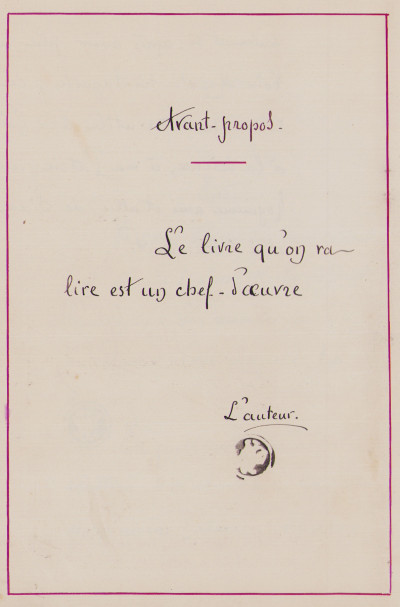 Avant-propos.
Le livre qu'on va
lire est un chef-d'œuvre
L'auteur.